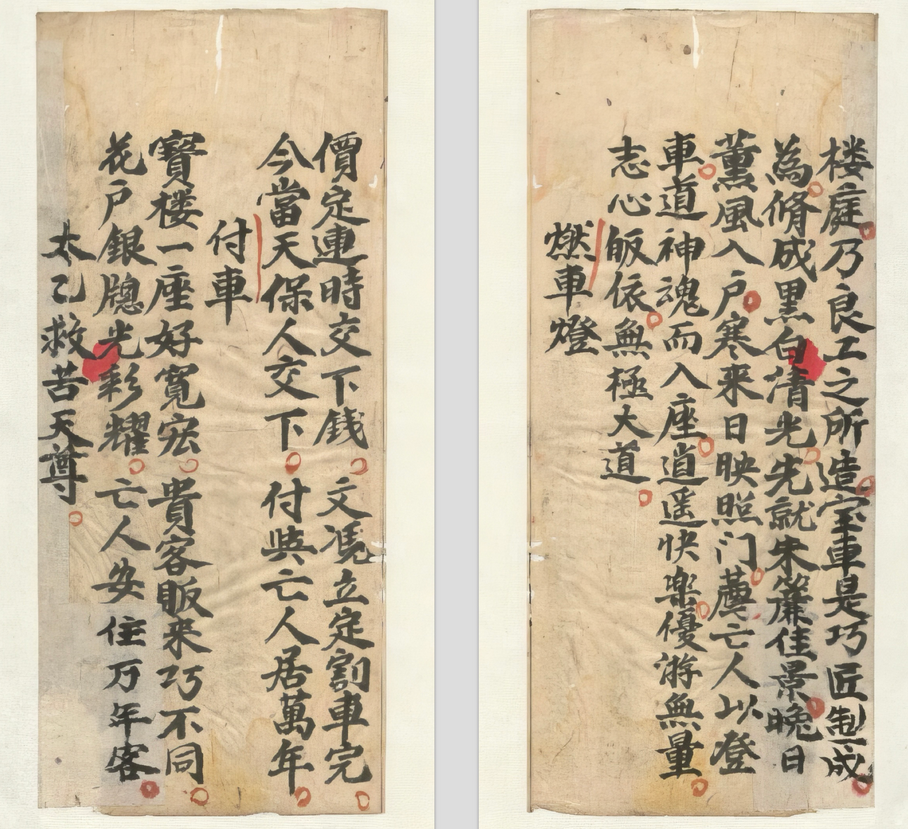 楼庭乃良工之所造室車是巧匠制成
為脩成黑白清光先就朱簾佳景晚日
薰風入户寒来日映照门薦亡人以登
車道神魂而入座逍遥快楽優游無量
志心皈依無極大道
燃車燈
價定連時交下钱文憑立定割車完
今當天保人交下付與亡人居萬年
付車
寳楼一座好寛宏貴客皈来巧不同
花户銀牕光彩耀亡人安住万年客
太乙救苦天尊